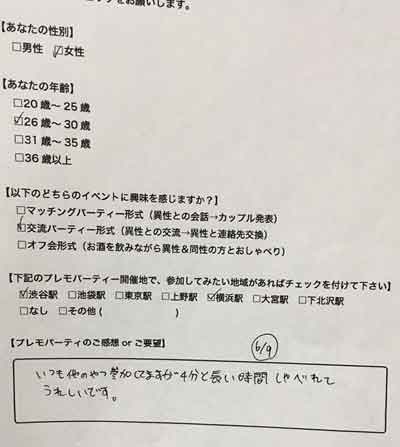 をお願いします。
【あなたの性別】
□男性 ☑女性
【あなたの年齢】
□20歳〜25歳
☑26歳〜30歳
□31歳〜35歳
□36歳以上
【以下のどちらのイベントに興味を感じますか？】
□マッチングパーティー形式（異性との会話→カップル発表）
☑交流パーティー形式（異性との交流→異性と連絡先交換）
□オフ会形式（お酒を飲みながら異性&同性の方とおしゃべり）
【下記のプレモパーティー開催地で、参加してみたい地域があればチェックを付けて下さい】
☑渋谷駅 □池袋駅 □東京駅 □上野駅 ☑横浜駅 □大宮駅 □下北沢駅
□なし □その他（ ）
6/9
【プレモパーティのご感想 or ご要望】
いつも他のやつ参加してますが4分と長い時間しゃべれて
うれしいです。